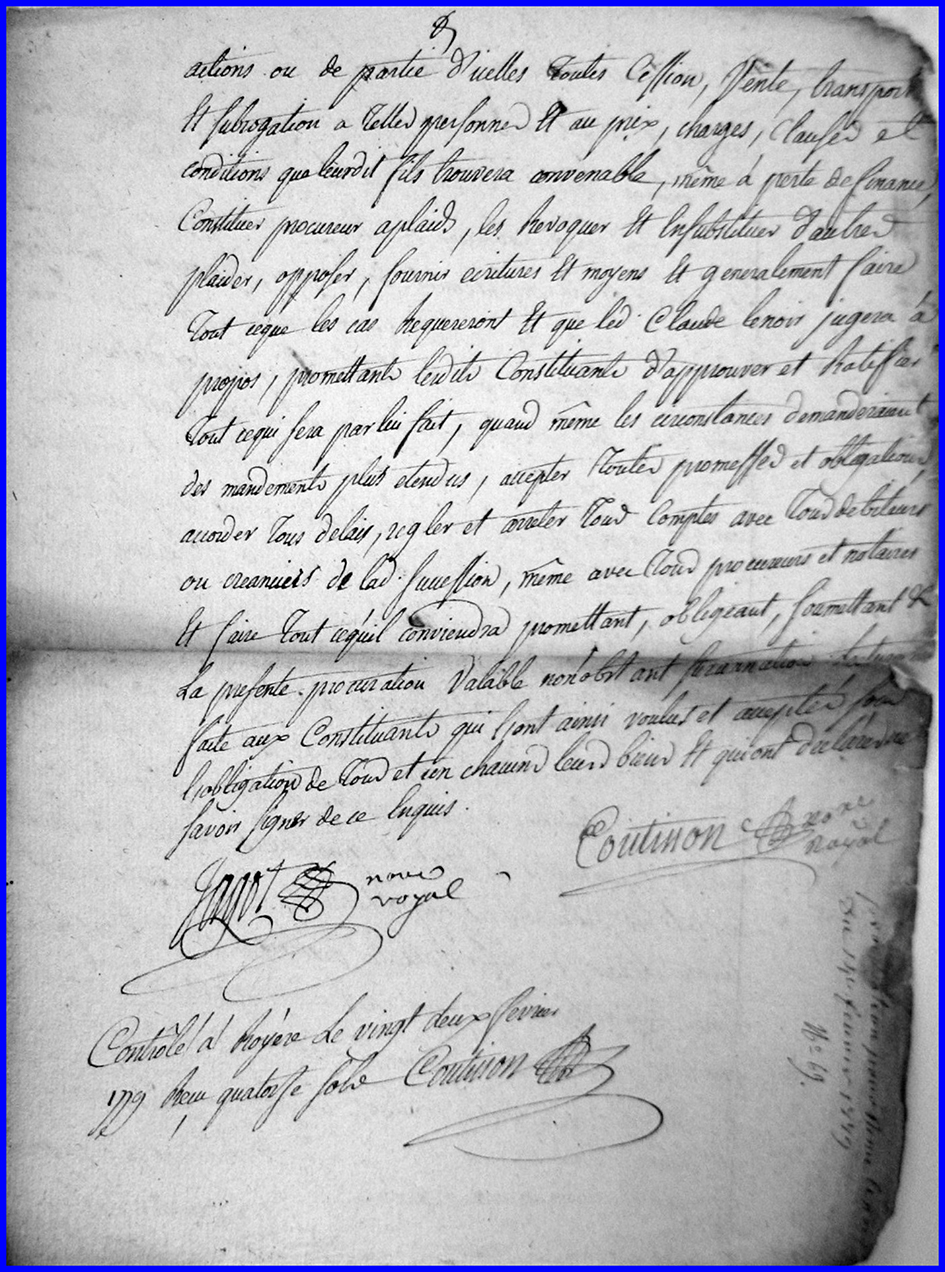 actions ou de partie d'icelles toutes Cession, Vente, transport
Et subrogation a telles personnes Et au prix, charges, clauses et
conditions que leurdit fils trouvera convenable, même à perte de finance,
Constituer procureur a plaids, les Revoquer Et En substituer d'autres
plaider, opposer, fournir ecritures Et moyens Et generalement faire
Tout ceque les cas Requereront Et que led. Claude lenoir jugera à
propos, promettants lesdits Constituants d'approuver et Ratifier
tout cequi sera par lui fait, quand même les circonstances demanderaient
des mandements plus etendus, accepter toutes promesses et obligations
accorder tous delais, regler et arreter tous Comptes avec tous debiteurs
ou creanciers de lad. succession, même avec tous procureurs et notaires
Et faire tout cequil conviendra promettant, obligeant, soumettant &
La presente procuration Valable nonobstant surannation. Lecture
faite aux Constituants qui l'ont ainsi voulus et acceptés sous
l'obligation de tous et un chacuns leurs biens Et qui ont déclarés ne
savoir signer de ce Enquis.
Coutisson nore
Royal
Jagot nore
royal
Contrôlé à Royère Le vingt deux février
1779 Reçu quatorse sols Coutisson
du 14e fevrier 1779
No 69